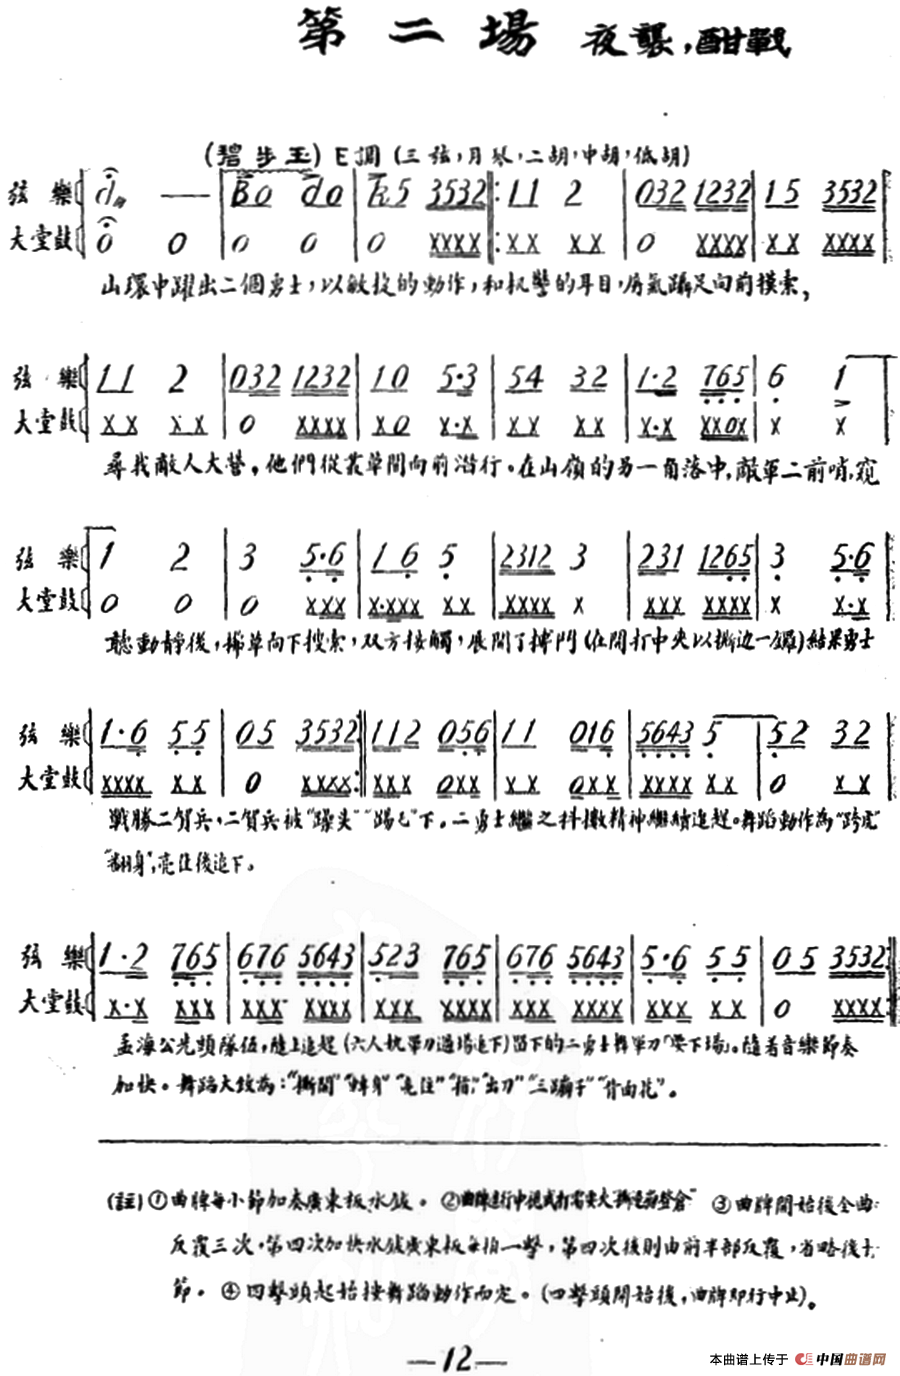 第二場 夜襲，酣戰
(碧步玉) E調 (三弦，月琴，二胡，中胡，低胡)
弦樂 Bo do 5 3532 : 11 2 032 1232 15 3532
大堂鼓 0 0 0 0 0 XXXX : XX XX 0 XXXX XX XXXX
山環中躍出二個勇士，以敏捷的動作，和机警的耳目，屏氣躡足向前摸索，
弦樂 11 2 032 1232 10 5·3 54 32 1·2 765 6 1
大堂鼓 XX XX 0 XXXX X0 X·X XX XX X·X XX0X X X
尋找敵人大營，他們從叢草間向前潛行。在山嶺的另一角落中，敵軍二前哨，窺
弦樂 1 2 3 5·6 16 5 2312 3 231 1265 3 5·6
大堂鼓 0 0 0 XXX X·XXX XX XXXX X XXX XXXX X X·X
聽動靜後，掃草向下搜索，双方接觸，展開了搏鬥(在開打中央以撕边一鑼)結果勇士
弦樂 1·6 55 05 3532 : 112 056 11 016 5643 5 52 32
大堂鼓 XXXX XX 0 XXXX : XXX 0XX XX 0XX XXXX XX 0 XX
戰勝二賀兵，二賀兵被“躁头”“踢毛”下。二勇士繼之抖擻精神繼續追趕。舞蹈動作為“跨虎”
“翻身”，亮住後追下。
弦樂 1·2 765 676 5643 523 765 676 5643 5·6 55 05 3532 :
大堂鼓 X·X XXX XXX XXXX XXX XXXX XXX XXXX XXX XX 0 XXXX
孟海公先頭隊伍，隨上追趕(六人执單刀過場追下)留下的二勇士舞單刀“耍下場”。隨着音樂節奏
加快。舞蹈大致為：“撕開”“轉身”“亮住”“指”“出刀”“三蹦子”“背面花”。
(註)①曲牌每小節加奏廣東板，水鈸。 ② ③曲牌開始後全曲
反覆三次，第四次加快水鈸廣東板每拍一擊，第四次後則由前半部反覆，省略後十
節。④四擊頭起始按舞蹈動作而定。(四擊頭開始後，曲牌即行中止)。
—12—
本曲谱上传于 中国曲谱网